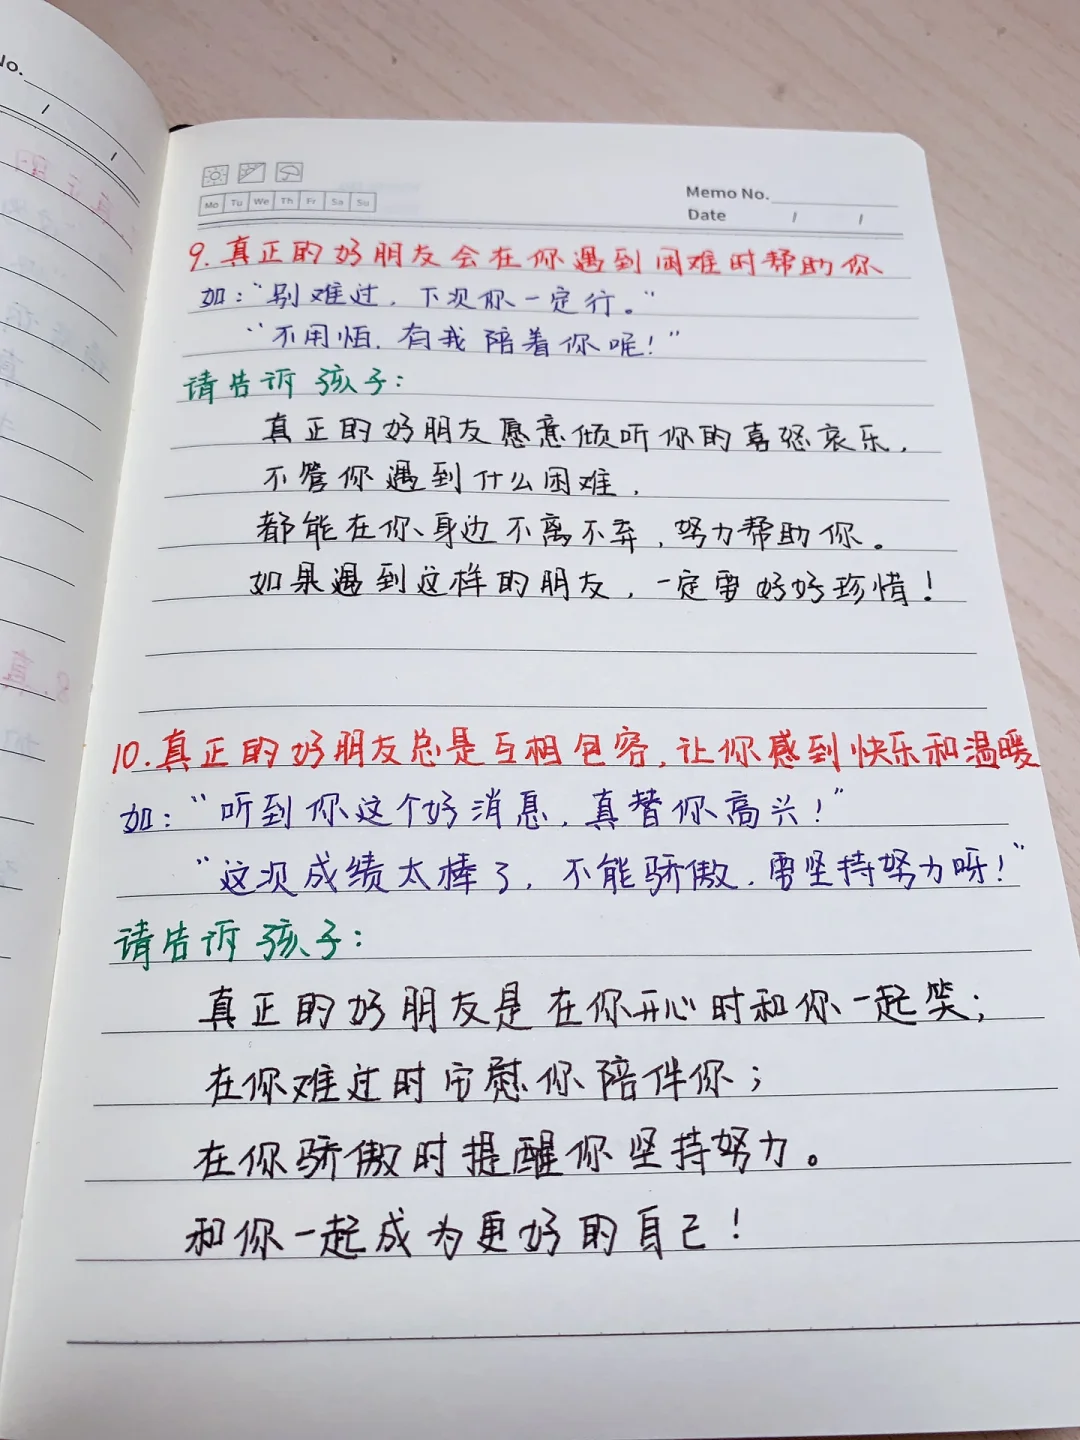 Mo Tu We Th Fr Sa Su
Memo No.
Date / /
9.真正的好朋友会在你遇到困难时帮助你
如:“别难过，下次你一定行。”
“不用怕，有我陪着你呢!”
请告诉孩子:
真正的好朋友愿意倾听你的喜怒哀乐，
不管你遇到什么困难，
都能在你身边不离不弃，努力帮助你。
如果遇到这样的朋友，一定要好好珍惜!
10.真正的好朋友总是互相包容，让你感到快乐和温暖
如:“听到你这个好消息，真替你高兴!”
“这次成绩太棒了，不能骄傲，要坚持努力呀!”
请告诉孩子:
真正的好朋友是在你开心时和你一起笑;
在你难过时安慰你陪伴你;
在你骄傲时提醒你坚持努力。
和你一起成为更好的自己!